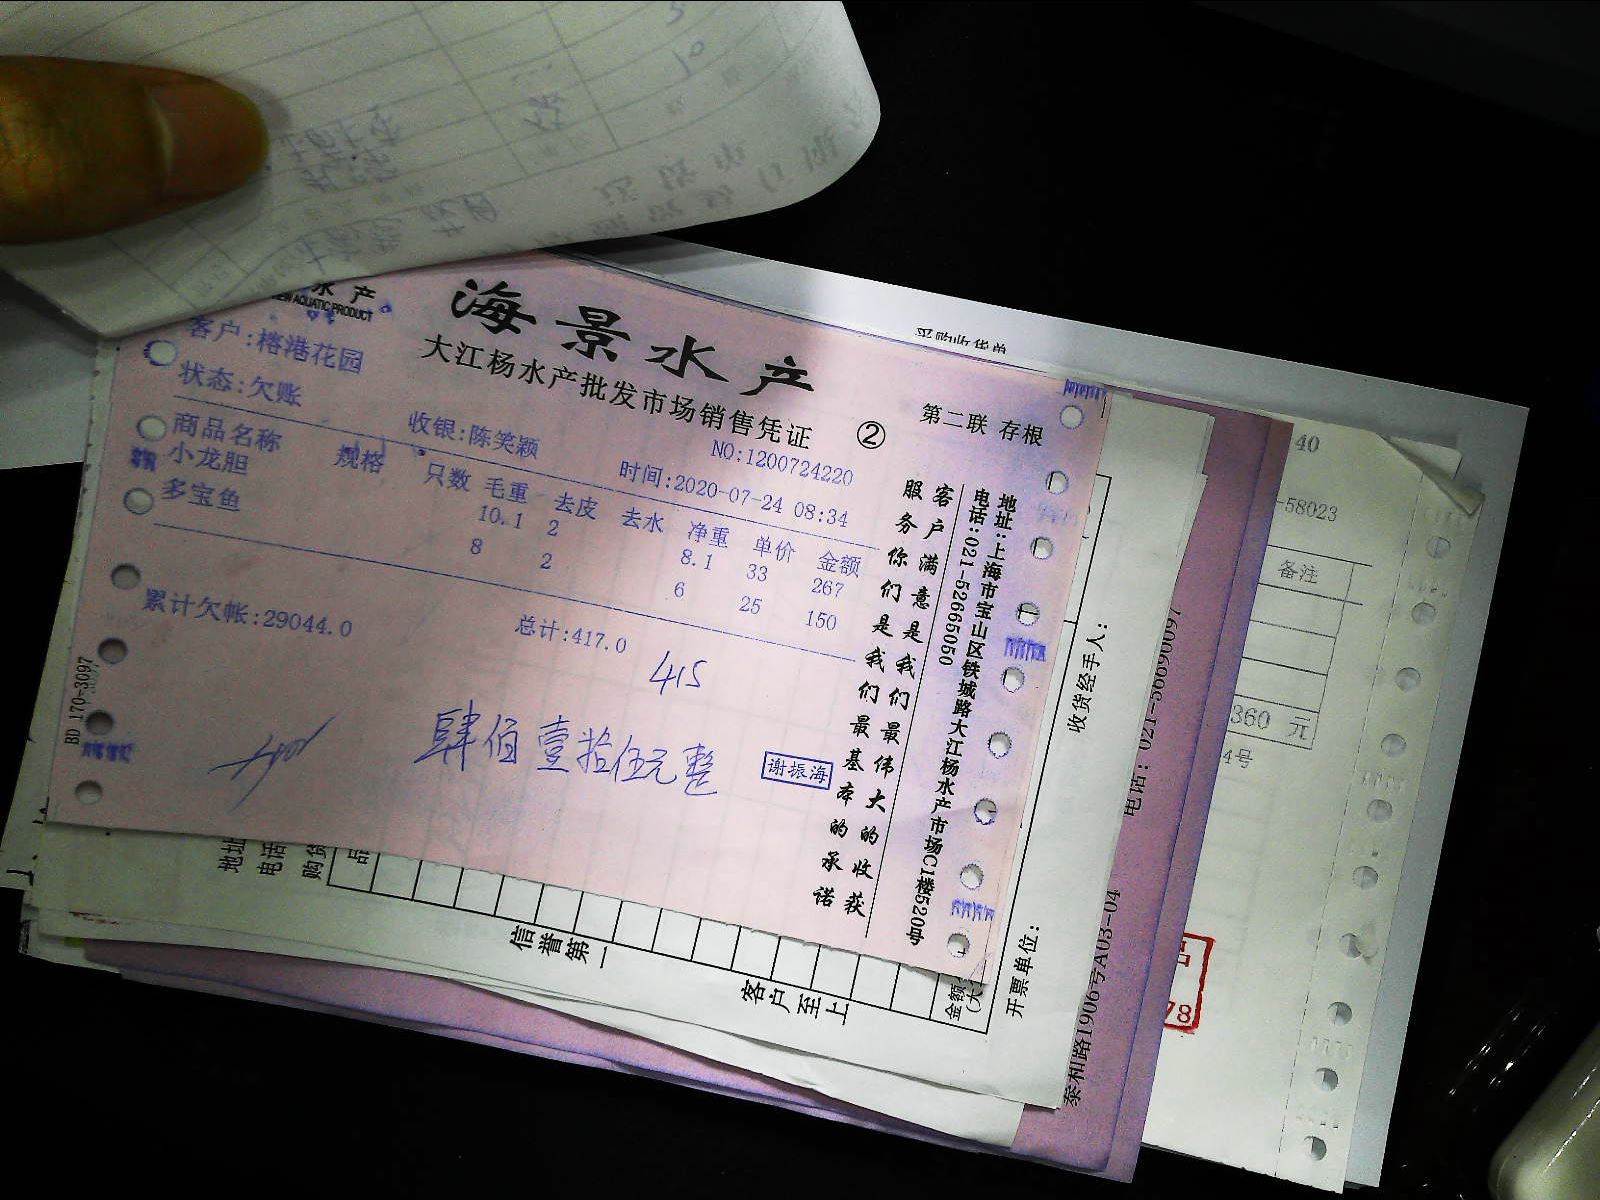 水产
VIEW AQUATIC PRODUCT
海景水产
大江杨水产批发市场销售凭证
② 第二联 存根
客户:榕港花园
状态:欠账
收银:陈笑颖
NO:1200724220
时间:2020-07-24 08:34
商品名称 规格 只数 毛重 去皮 去水 净重 单价 金额
小龙胆 10.1 2 8.1 33 267
多宝鱼 8 2 6 25 150
累计欠帐:29044.0 总计:417.0
415
肆佰壹拾伍元整
谢振海
BD 170-3097
客户满意是我们最伟大的收获
服务你们是我们最基本的承诺
地址:上海市宝山区铁城路大江杨水产市场C1楼520号
电话:021-52665050
采购收货单
40
-58023
备注
360 元
4号
收货经手人:
开票单位:
电话:021-56690097
泰和路1906号A03-04
地址
电话
购货
品
信誉第一
客户至上
金额
(大
78